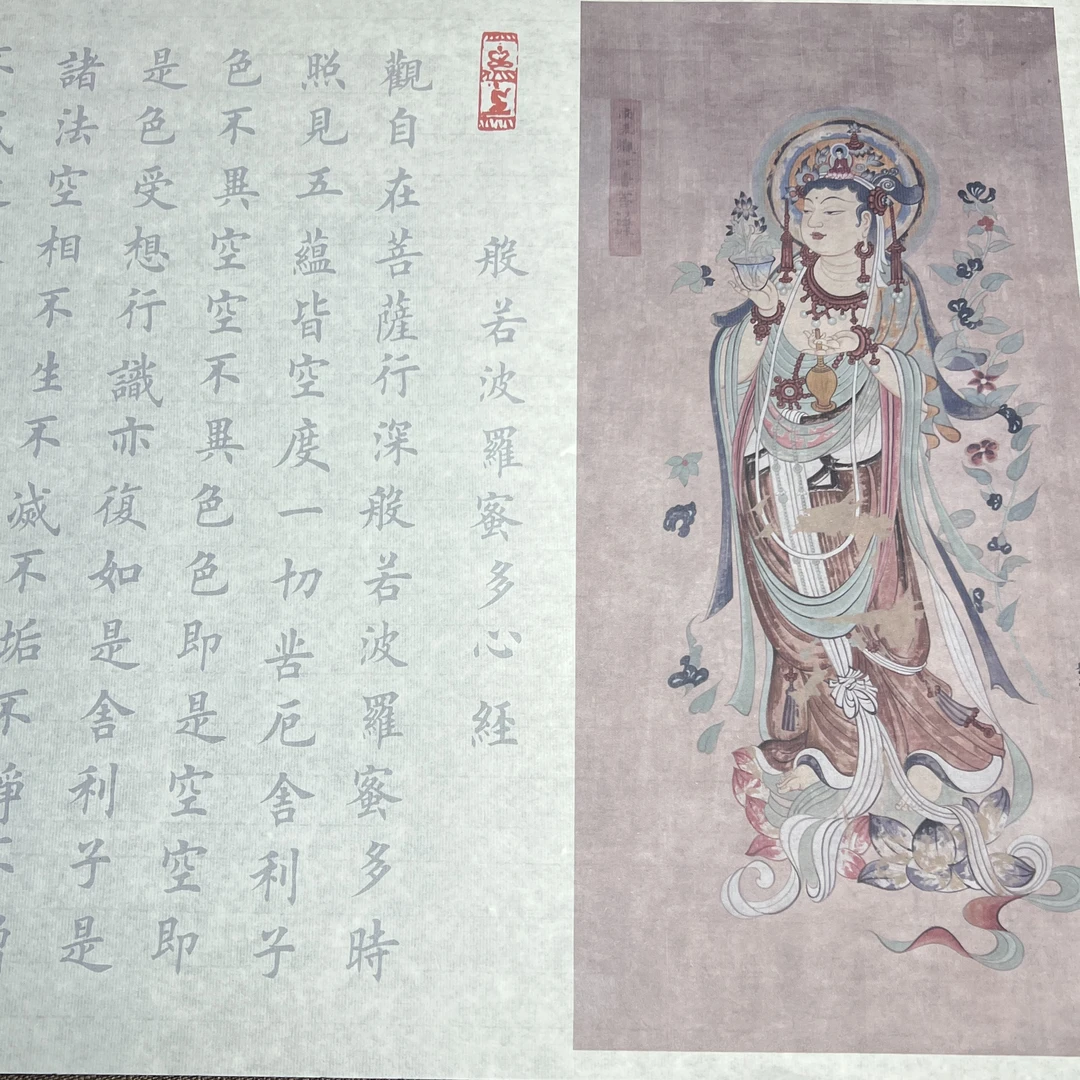 般若波羅蜜多心経
觀自在菩薩行深般若波羅蜜多時
照見五蘊皆空度一切苦厄舎利子
色不異空空不異色色即是空空即
是色受想行識亦復如是舎利子是
諸法空相不生不滅不垢不淨不